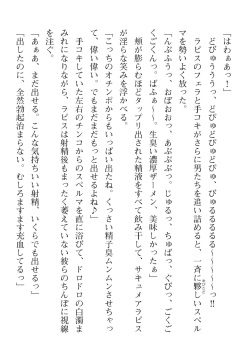 「はわぁあっ！」
　どぴゅううっ、どぴゅどぴゅ、びゅるるるる～～～～～っ‼
　ラピスのフェラと手コキがさらに男たちを追い詰めると、一斉に夥しいスペル
マを勢いよく放った。
「んぷふうっ、おぼおおっ、あぶぶぶっ。じゅるっ、ちゅばっ、ぐびっ、ごくご
くごくんっ。ぱふぁぁ～っ。生臭い濃厚ザーメン、美味しかったぁ」
　頬が膨らむほどタップリ出された精液をすべて飲み干して、サキュメアラピス
が淫らな笑みを浮かべる。
「こっちのオチンポからもいっぱい出たね。くっさい精子臭ムンムンさせちゃっ
て、偉い偉い。でもまだまだもっと出せるよね♪」
　手コキしていた左右のチンコからのスペルマを直に浴びて、ドロドロの白濁ま
みれになりながら、ラピスは射精後もまったく萎えていない彼らのちんぽに視線
を注ぐ。
「あぁあ、まだ出せる。こんな気持ちいい射精、いくらでも出せるっ」
「出したのに、全然勃起治まらない。むしろますます充血してるっ」